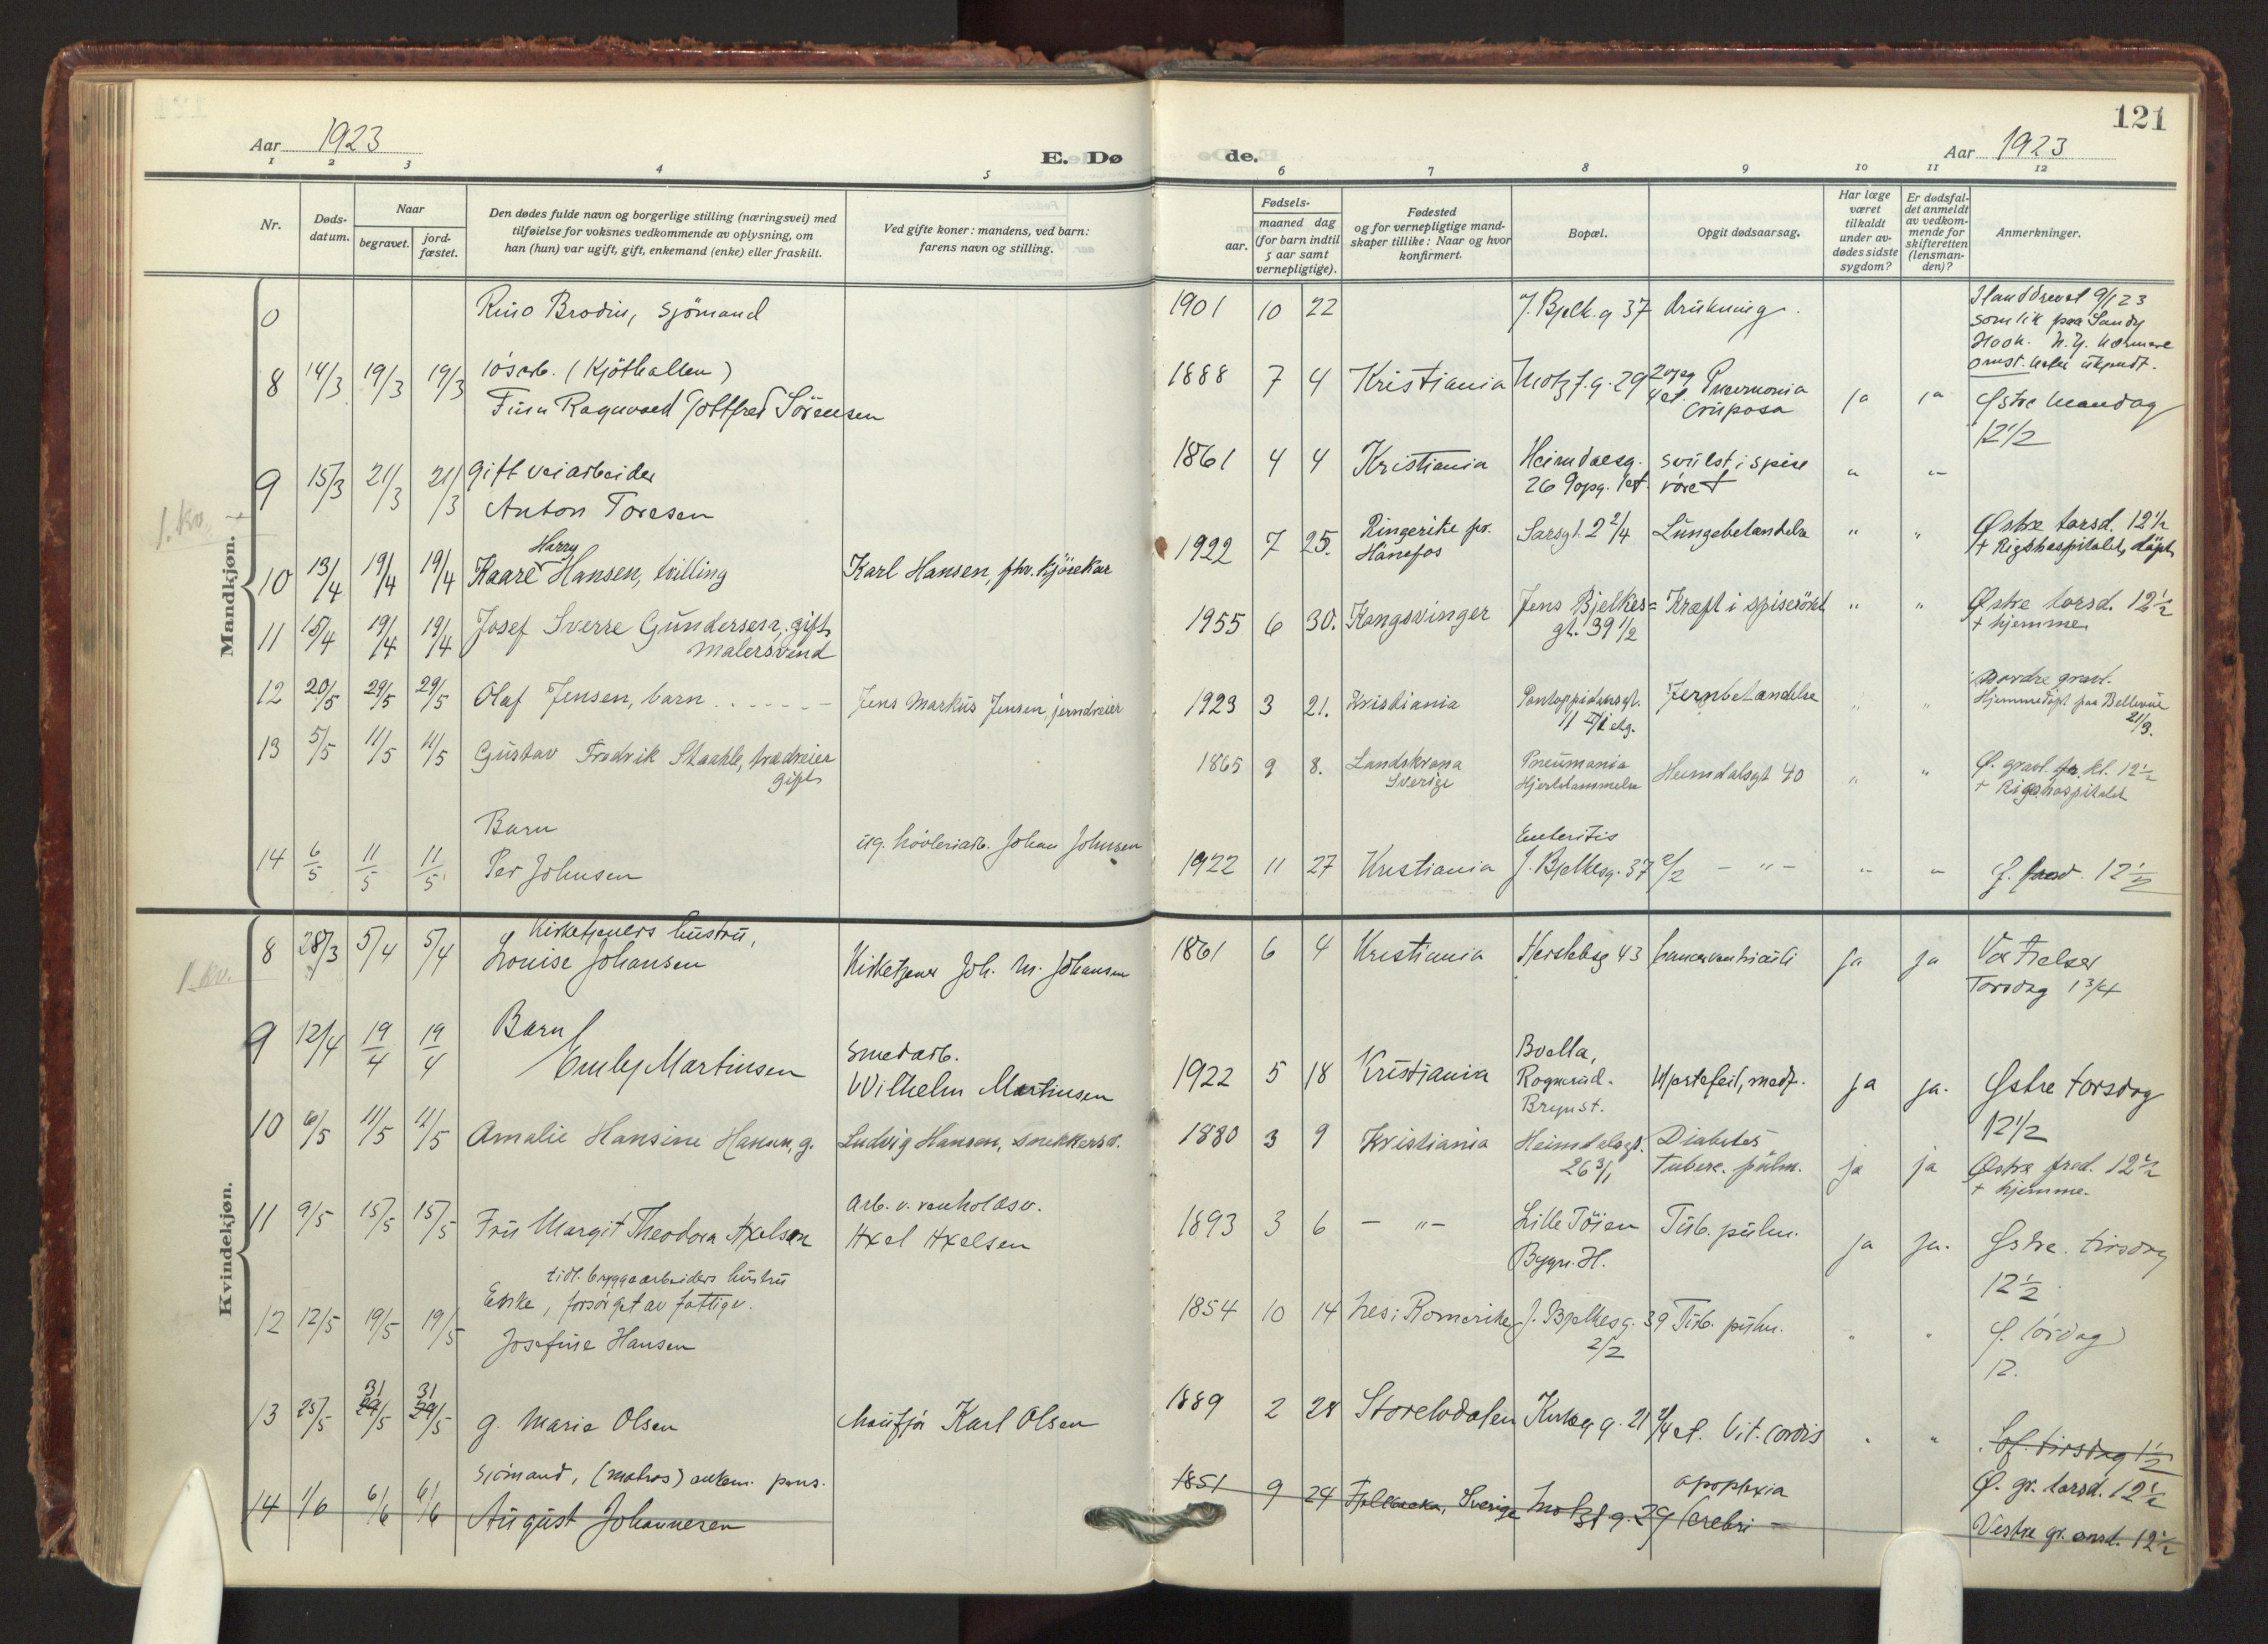 121
Aar 1923
E. Dø
1 2 3 4 5
Nr.
Døds-
datum.
Naar
begravet.
jord-
fæstet.
Den dødes fulde navn og borgerlige stilling (næringsvei) med
tilføielse for voksnes vedkommende av oplysning, om
han (hun) var ugift, gift, enkemand (enke) eller fraskilt.
Ved gifte koner: mandens, ved barn:
farens navn og stilling.
de.
Aar 1923
6 7 8 9 10 11 12
Fødsels-
aar.
maaned dag
(for barn indtil
5 aar samt
vernepligtige).
Fødested
og for vernepligtige mand-
skaper tillike: Naar og hvor
konfirmert.
Bopæl.
Opgit dødsaarsag.
Har læge
været
tilkaldt
under av-
dødes sidste
sygdom?
Er dødsfal-
det anmeldt
av vedkom-
mende for
skifteretten
(lensman-
den)?
Anmerkninger.
Mandkjøn.
1. kv.
0 Brodin, sjömand 1901 10 22 J. Bjelk. g 37 drukning.
9/1 23
som lik paa Sandy
Hook. N.Y.
8 14/3 19/3 19/3 løsarb. (Kjöthallen)
Finn Ragnvald Gottfred Sörensen
1888 7 4 Kristiania Motzf. g. 29 2 opg 4 et. Pneumonia
cruposa ja ja Østre Mandag
12 1/2
9 15/3 21/3 21/3 gift veiarbeider
Anton Toresen
1861 4 4 Kristiania Heimdalsg.
26 9 opg. 1 et. svulst i spise
röret " "
10 13/4 19/4 19/4 Kaare Harry Hansen, tvilling Karl Hansen, fhv. kjörekar
1922 7 25. Ringerike pr.
Hønefos Sarsgt. 2 2/4 Lungebetændelse " " Østre torsd. 12 1/2
+ Rigshospitalet, döpt
11 15/4 19/4 19/4 Josef Sverre Gundersen, gift
malersvend
1955 6 30. Kongsvinger Jens Bjelkes=
gt. 39 1/2 Kræft i spiseröret " " Østre torsd. 12 1/2
+ hjemme.
12 20/5 29/5 29/5 Olaf Jensen, barn . . . . . . - Jens Markus Jensen, jerndreier
1923 3 21. Kristiania Pontoppidansgt.
Jernbetændelse " " Nordre gravl.
Hjemmedöpt paa Bellevue
21/3.
13 5/5 11/5 11/5 Gustav Fredrik Staahle, trædreier
gift
1865 9 8. Landskrona
Sverige Pneumonia
Hjertelammelse Heimdalsgt 40 " " Ø. gravl. fr. kl. 12 1/2
+ Rigshospitalet
14 6/5 11/5 11/5 Barn
Per Johnsen ug. hövleriarb. Johan Johnsen
1922 11 27 Kristiania Enteritis
J. Bjelkesg. 37 2/2 - " - " " 12 1/2
Kvindekjøn.
1. kv.
8 28/3 5/4 5/4 Kirketjeners hustru,
Louise Johansen Kirketjener Joh. M. Johansen
1861 6 4 Kristiania Herslebsg 43 Cancer ventriculi ja ja Vor Frelser
Torsdag 1 3/4
9 12/4 19/4 19/4 Barn
Emly Martinsen smedarb.
Wilhelm Martinsen
1922 5 18 Kristiania
Brynst. Hjertefeil, medf. ja ja. Østre torsdag
12 1/2
10 6/5 11/5 11/5 Amalie Hansine Hansen, g. Ludvig Hansen, snekkersv.
1880 3 9 Kristiania Heimdalsgt.
26 3/1 Diabetes
Tuberc. pulm. ja ja Østre fred. 12 1/2
+ hjemme.
11 9/5 15/5 15/5 Fru Margit Theodora Axelsen Arb. v. renholdsv.
Axel Axelsen
1893 3 6 - " - Lille Töien
Bygn. H. Tub. pulm. ja ja. Østre. tirsdag
12 1/2
12 12/5 19/5 19/5 tidl. bryggearbeiders hustru
Enke, forsörget av fattigv.
Josefine Hansen
1854 10 14 Nes i Romerike J. Bjelkesg. 39
2/2 Tub. pulm. " " Ø. lördag
12.
13 25/5 31/5 29/5 31/5 29/5 g. Marie Olsen Chaufför Karl Olsen
1889 2 28 Storelvdalen 21 2/4 et. Vit. cordis " " Sof. tirsdag 1 1/2
Ø. gr. torsd. 12 1/2
14 1/6 6/6 6/6 Sjömand, (matros) enkem. pens.
August Johannesen
1851 9 24 Fjellbacka, Sverige Motzf g. 29 apoplexia
Cerebri - Vestre gr. onsd. 12 1/2